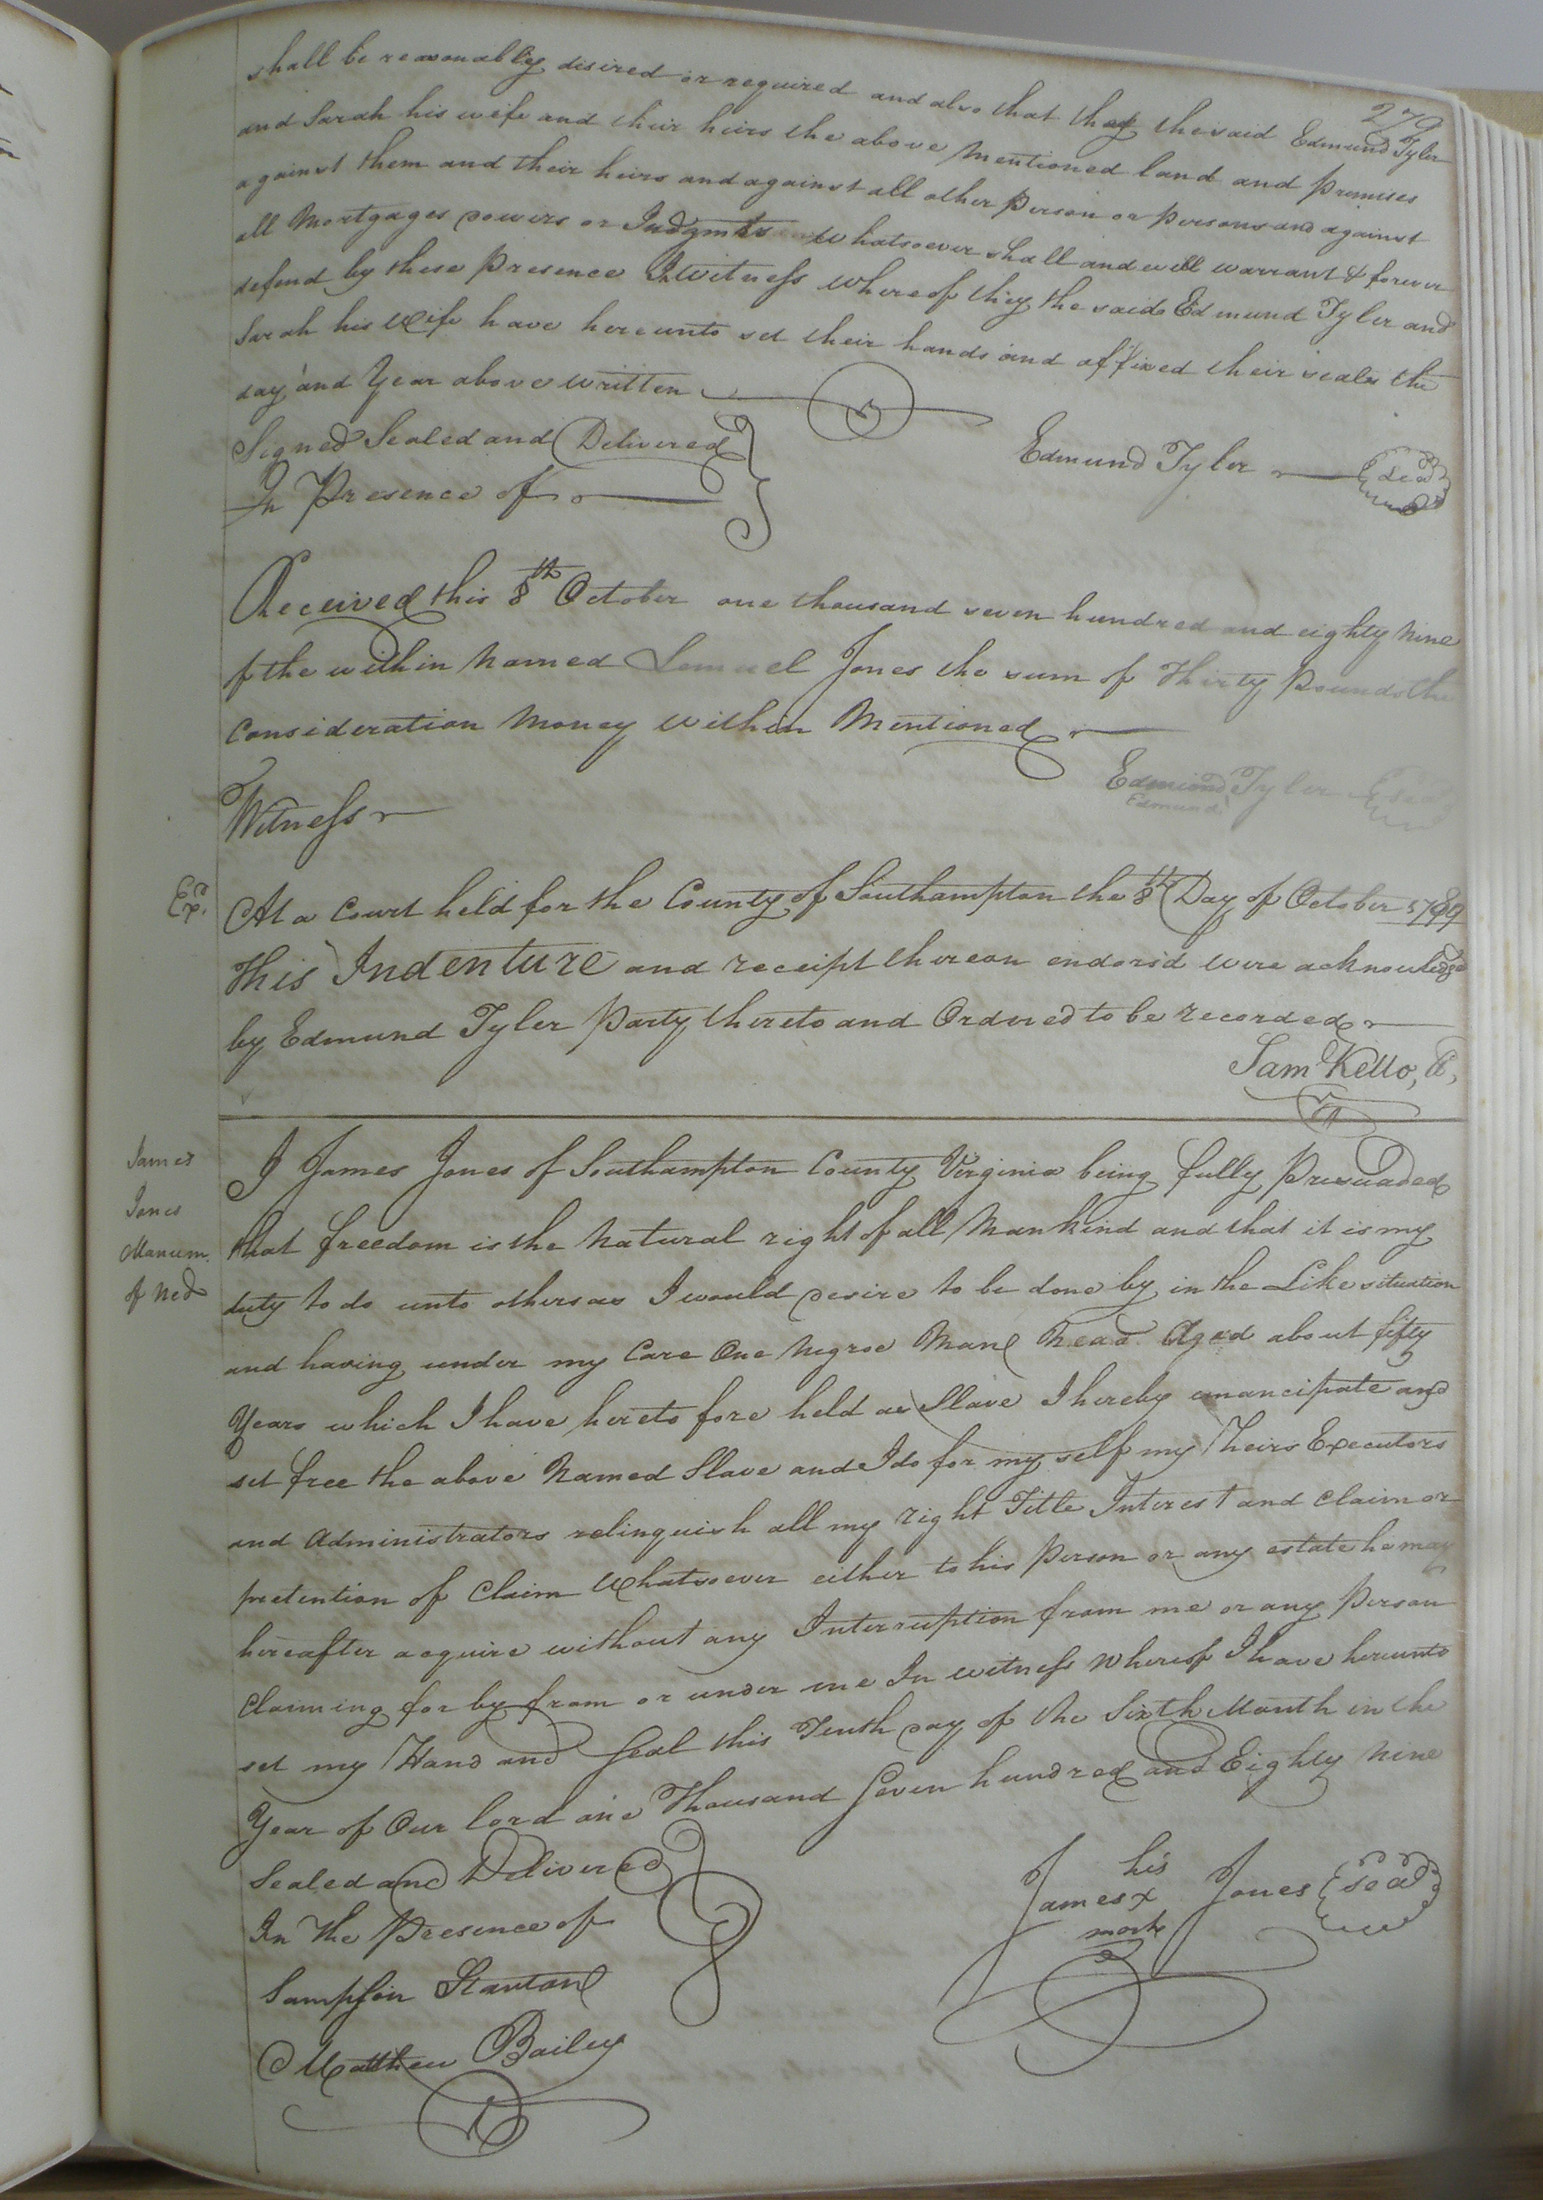 279
shall be reasonably disired or required and also that they the said Edmund Tyler
and Sarah his wife and their heirs the above mentioned land and Premises
against them and their heirs and against all other Person or Persons and against
all Mortgages powers or Judgmts whatsoever shall and will warrant & forever
defend by these Presence Iwitness whereof they the said Edmund Tyler and
Sarah his Wife have hereunto set their hands and affixed their seales the
day and Year above written
Signed Sealed and Delivered
In Presence of
Edmund Tyler Seal
Received this 8th October one thousand seven hundred and eighty Nine
of the within Named Lemuel Jones the sum of Thirty Pounds the
Consideration Money within Mentioned
Edmund Tyler Seal
Edmund
Witness
Exd.
At a Court held for the County of Southampton the 8th Day of October 1789
This Indenture and receipt thereon endorsd were acknowledged
by Edmund Tyler Party thereto and Ordered to be recorded
Sam Kello, C,
James
Jones
Manum.
of Ned
I James Jones of Southampton County Virginia being fully Presuaded
that freedom is the Natural right of all Mankind and that it is my
duty to do unto others as I would desire to be done by in the Like situation
and having under my Care One Negroe Man Nead Aged about fifty
Years which I have heretofore held as Slave I hereby emancipate and
set free the above Named Slave and I do for my self my Heirs Executors
and Administrators relinquish all my right Title Interest and Claim or
pretention of Claim Whatsoever either to his Person or any estate he may
hereafter acquire without any Interruption from me or any Person
Claiming for by from or under me In witness Whereof I have hereunto
set my Hand and Seal this Tenth day of the Sixth Month in the
Year of Our lord one Thousand Seven hundred and Eighty Nine
Sealed and Delivered
In the Presence of
Sampson Stanton
Matthew Bailey
his
James x Jones Seal
mark